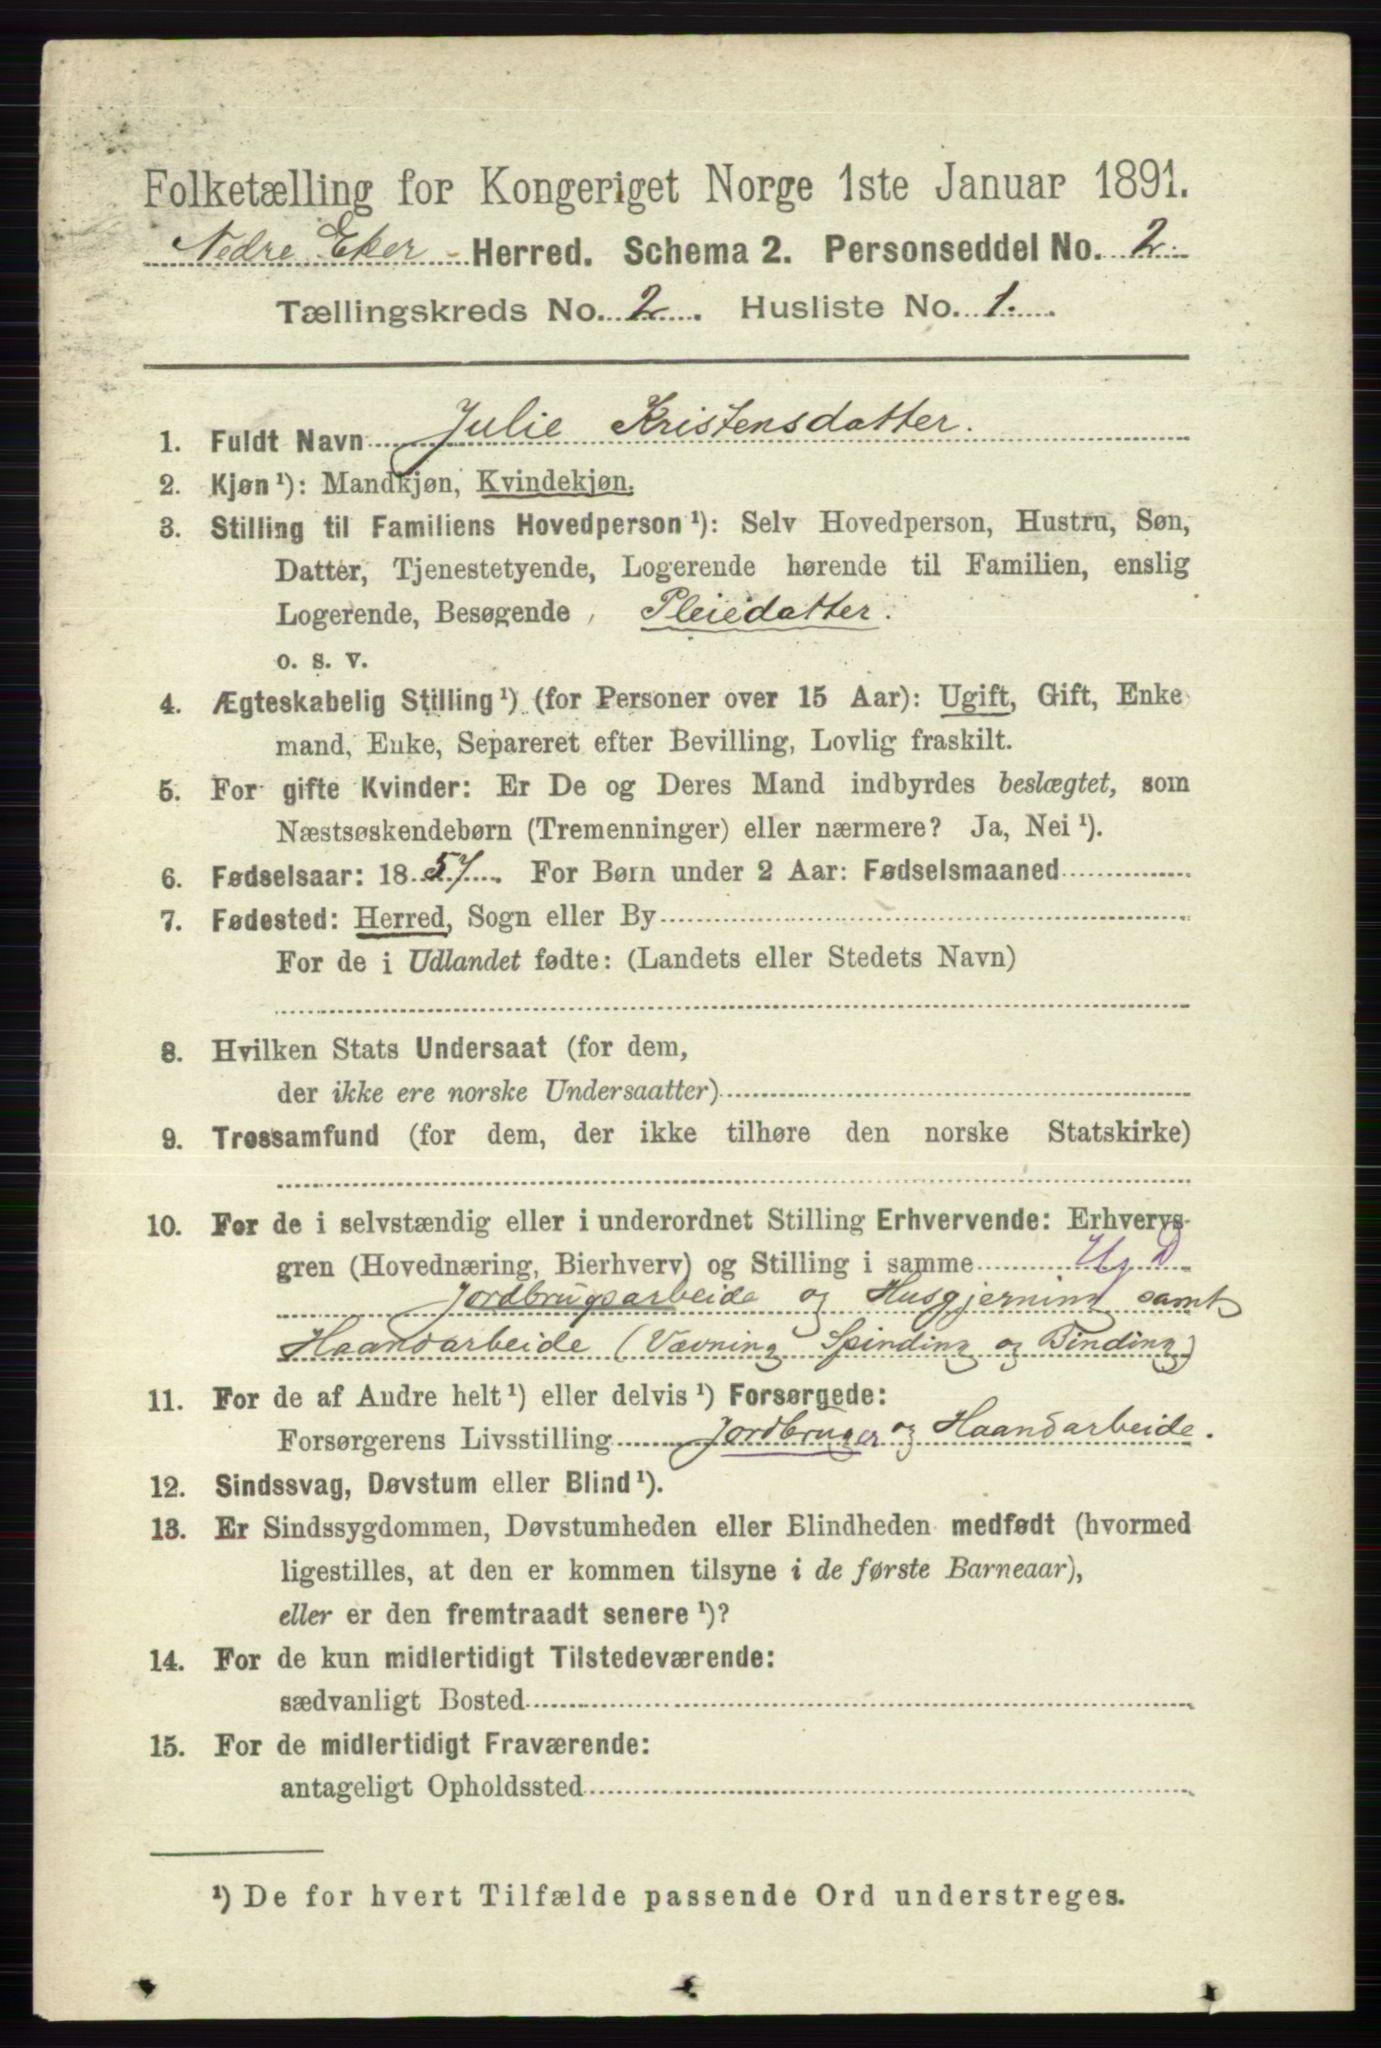 Folketælling for Kongeriget Norge 1ste Januar 1891.
Nedre Eker Herred. Schema 2. Personseddel No. 2
Tællingskreds No. 2. Husliste No. 1.
1. Fuldt Navn Julie Kristensdatter.
2. Kjøn¹): Mandkjøn, Kvindekjøn.
3. Stilling til Familiens Hovedperson¹): Selv Hovedperson, Hustru, Søn,
Datter, Tjenestetyende, Logerende hørende til Familien, enslig
Logerende, Besøgende, Pleiedatter.
o. s. v.
4. Ægteskabelig Stilling¹) (for Personer over 15 Aar): Ugift, Gift, Enke
mand, Enke, Separeret efter Bevilling, Lovlig fraskilt.
5. For gifte Kvinder: Er De og Deres Mand indbyrdes beslægtet, som
Næstsøskendebørn (Tremenninger) eller nærmere? Ja, Nei¹).
6. Fødselsaar: 1857. For Børn under 2 Aar: Fødselsmaaned
7. Fødested: Herred, Sogn eller By
For de i Udlandet fødte: (Landets eller Stedets Navn)
8. Hvilken Stats Undersaat (for dem,
der ikke ere norske Undersaatter)
9. Trossamfund (for dem, der ikke tilhøre den norske Statskirke)
10. For de i selvstændig eller i underordnet Stilling Erhvervende: Erhvervs-
gren (Hovednæring, Bierhverv) og Stilling i samme Hj D
Jordbrugsarbeide og Husgjerning samt
Haandarbeide (Vævning Spinding og Binding)
11. For de af Andre helt¹) eller delvis¹) Forsørgede:
Forsørgerens Livsstilling Jordbruger og Haandarbeide.
12. Sindssvag, Døvstum eller Blind¹).
13. Er Sindssygdommen, Døvstumheden eller Blindheden medfødt (hvormed
ligestilles, at den er kommen tilsyne i de første Barneaar),
eller er den fremtraadt senere¹)?
14. For de kun midlertidigt Tilstedeværende:
sædvanligt Bosted
15. For de midlertidigt Fraværende:
antageligt Opholdssted
¹) De for hvert Tilfælde passende Ord understreges.